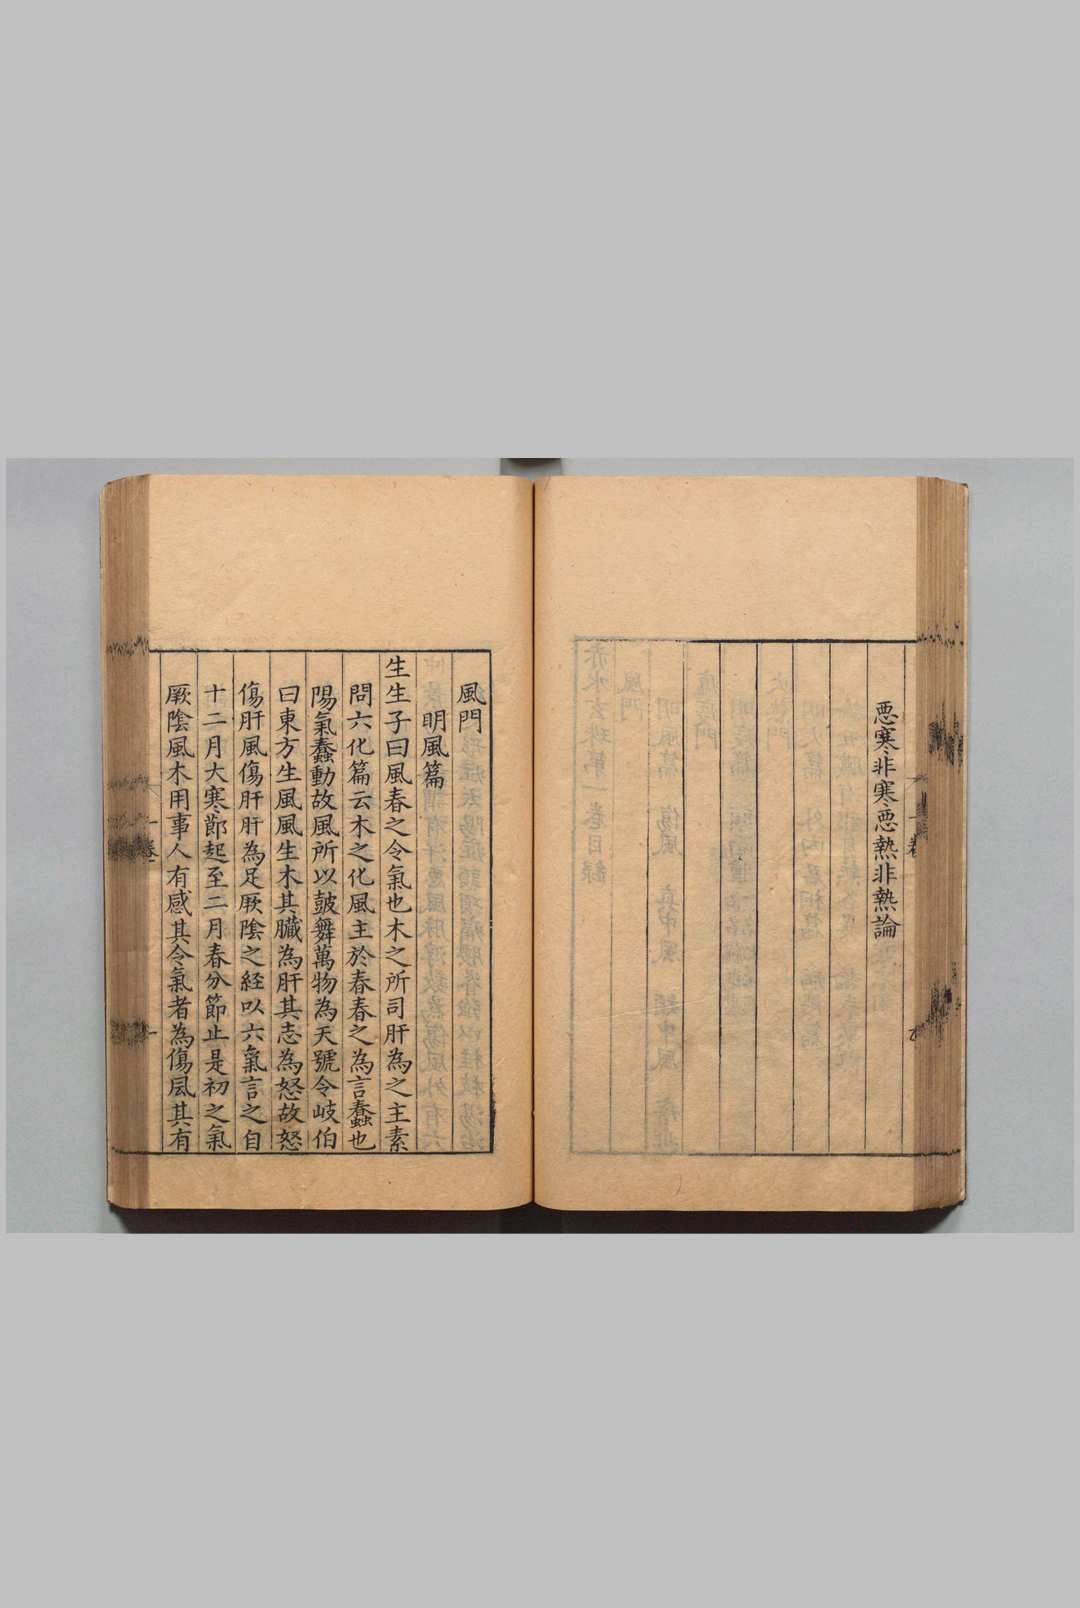 惡寒非寒惡熱非熱論
風門
明風篇
生生子曰風春之令氣也木之所司肝為之主素
問六化篇云木之化風主於春春之為言蠢也
陽氣蠢動故風所以鼓舞萬物為天號令岐伯
曰東方生風風生木其臟為肝其志為怒故怒
傷肝風傷肝肝為足厥陰之経以六氣言之自
十二月大寒節起至二月春分節止是初之氣
厥陰風木用事人有感其令氣者為傷風其有